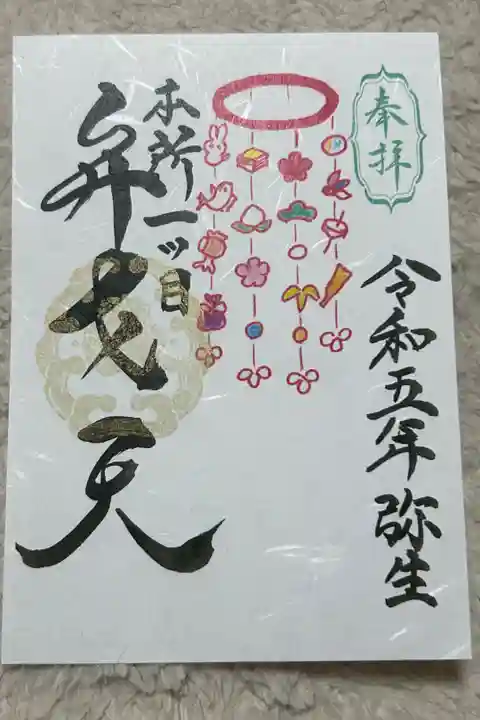 奉拝
令和五年弥生
本所一ツ目
弁天